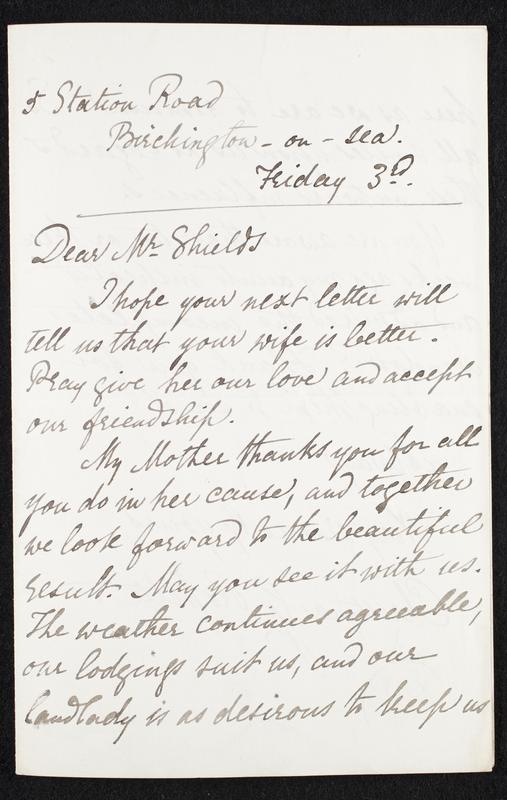 5 Station Road
Birchington-on-Sea.
Friday 3rd.
Dear Mr. Shields
I hope your next letter will
tell us that your wife is better.
Pray give her our love and accept
our friendship.
My Mother thanks you for all
you do in her cause, and together
we look forward to the beautiful
result. May you see it with us.
The weather continues agreeable,
our lodgings suit us, and our
landlady is as desirous to keep us